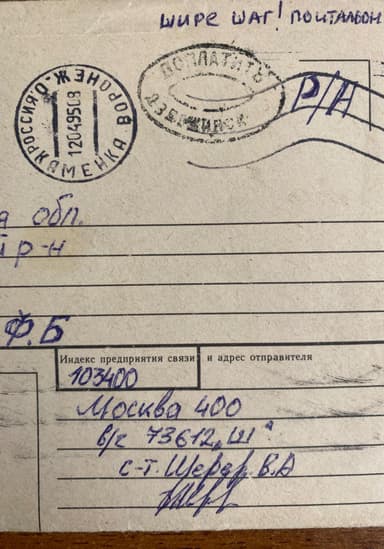 ШИРЕ ШАГ! ПОЧТАЛЬОН
РОССИЯ.О.ЖЕНОРОВ
12049508
КАМЕНКА
ДОПЛАТИТЬ
ДЗЕРЖИНСК
Р/А
а обл.
й р-н
Ф.Б
Индекс предприятия связи и адрес отправителя
103400
Москва 400
в/ч 73612 „Ш"
с-т. Шерар В.А